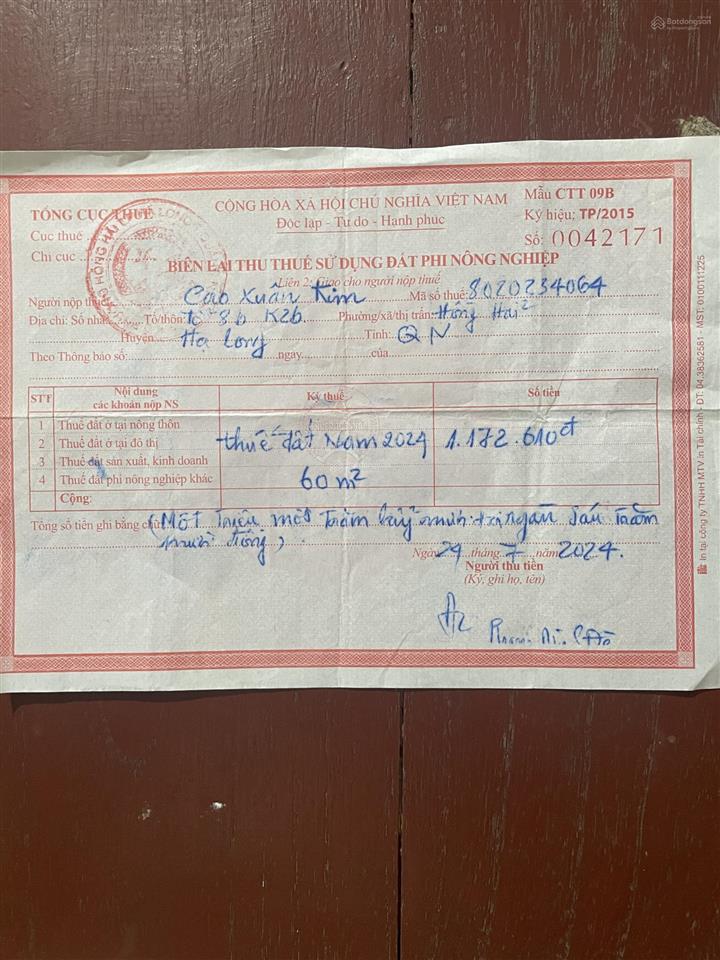 Batdongsan
TỔNG CỤC THUẾ
CỘNG HÒA XÃ HỘI CHỦ NGHĨA VIỆT NAM
Mẫu CTT 09B
Cục thuế
Độc lập - Tự do - Hạnh phúc
Ký hiệu: TP/2015
Chi cục
Số: 0042171
BIÊN LAI THU THUẾ SỬ DỤNG ĐẤT PHI NÔNG NGHIỆP
Liên 2: Giao cho người nộp thuế
Người nộp thuế: Cao Xuân Kim Mã số thuế: 8020234064
Địa chỉ: Số nhà Tổ/thôn: tổ 8b K2b Phường/xã/thị trấn: Hồng Hải
Huyện Hạ Long Tỉnh: QN
Theo Thông báo số: ngày của
STT Nội dung các khoản nộp NS Kỳ thuế Số tiền
1 Thuế đất ở tại nông thôn
2 Thuế đất ở tại đô thị thuế đất Năm 2024 1.172.610đ
3 Thuế đất sản xuất, kinh doanh
4 Thuế đất phi nông nghiệp khác 60m²
Cộng:
Tổng số tiền ghi bằng chữ: (Một triệu một trăm bảy mươi hai ngàn sáu trăm
mười đồng)
Ngày 29 tháng 7 năm 2024.
Người thu tiền
(Ký, ghi họ, tên)
In tại công ty TNHH MTV In Tài chính - ĐT: 04.38362581 - MST: 0100111225